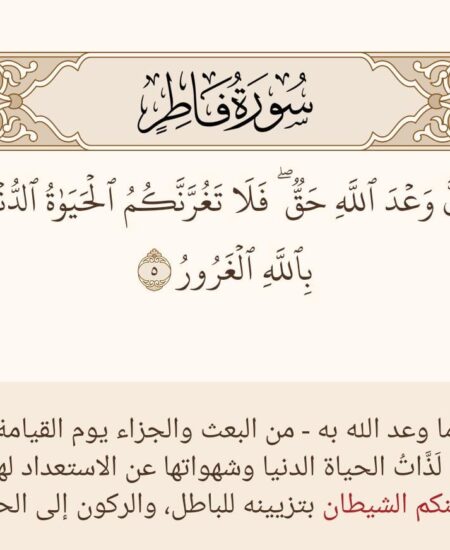 سُورَةُ فَاطِرٍ
وَعْدَ ٱللَّهِ حَقٌّۖ فَلَا تَغُرَّنَّكُمُ ٱلْحَيَوٰةُ
بِٱللَّهِ ٱلْغَرُورُ ٥
ما وعد الله به - من البعث والجزاء يوم القيامة
لَذَّاتُ الحياة الدنيا وشهواتها عن الاستعداد
الشيطان بتزيينه للباطل، والركون إلى